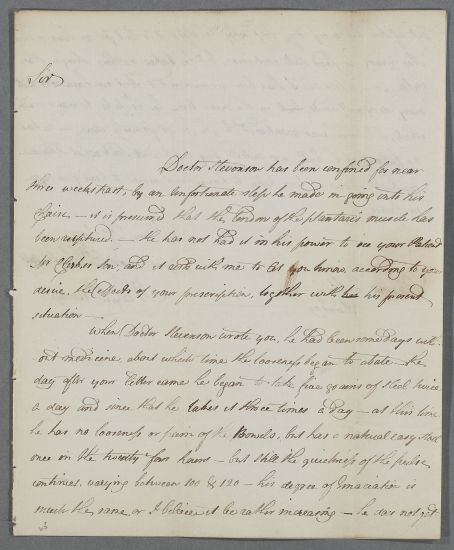 Sir
Doctor Stevenson has been confined for near
three weeks past, by an unfortunate step he made in going into his
Chaise, — it is presumed that the tendon of the plantaris muscle has
been ruptured. — He has not had it in his power to see your Patient
Mr son, and it rests with me to let you know, according to your
desire, the effects of your prescription, together with his present
situation —
When Doctor Stevenson wrote you, he had been some days with-
out medicine, about which time the looseness began to abate — the
day after your letter came he began to take five grains of steel twice
a day and since that he takes it three times a day — at this time
he has no looseness or pain of the Bowels, but has a natural easy stool
once in the twenty four hours — but still the quickness of the pulse
continues, varying between 100 & 120 — his degree of emaciation is
much the same, or I believe it be rather increasing — he does not get